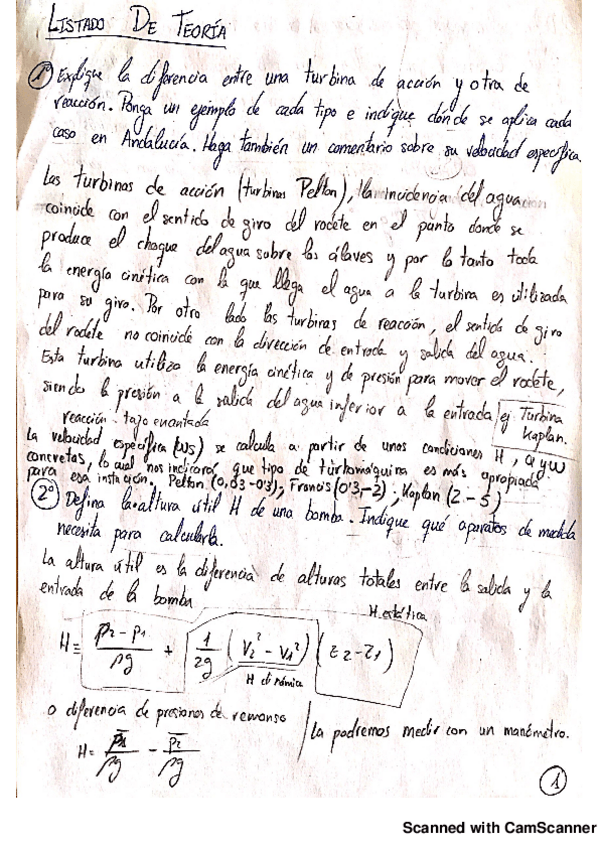 LISTADO DE TEORÍA
1º Explique la diferencia entre una turbina de acción y otra de
reacción. Ponga un ejemplo de cada tipo e indique dónde se aplica cada
caso en Andalucía. Haga también un comentario sobre su velocidad específica.
Las turbinas de acción (turbinas Pelton), la incidencia del agua
coincide con el sentido de giro del rodete en el punto donde se
produce el choque del agua sobre los álaves y por lo tanto toda
la energía cinética con la que llega el agua a la turbina es utilizada
para su giro. Por otro lado las turbinas de reacción, el sentido de giro
del rodete no coincide con la dirección de entrada y salida del agua.
Esta turbina utiliza la energía cinética y de presión para mover el rodete,
siendo la presión a la salida del agua inferior a la entrada ej Turbina Kaplan.
reacción: tajo encantada
La velocidad específica (ws) se calcula a partir de unas condiciones H, Q y w
concretas, lo cual nos indicará que tipo de turbomaquina es más apropiada
para esa instalación. Pelton (0,03-0'3), Francis (0'3,-2); Kaplan (2-5)
2º Defina la altura útil H de una bomba. Indique qué aparatos de medida
necesita para calcularla.
La altura útil es la diferencia de alturas totales entre la salida y la
entrada de la bomba
H estática
H = (p2 - p1)/ρg + 1/2g (V2² - V1²) (z2 - z1)
H dinámica
o diferencia de presiones de remanso
La podremos medir con un manómetro.
H = p̄1/ρg - p̄2/ρg
1
Scanned with CamScanner